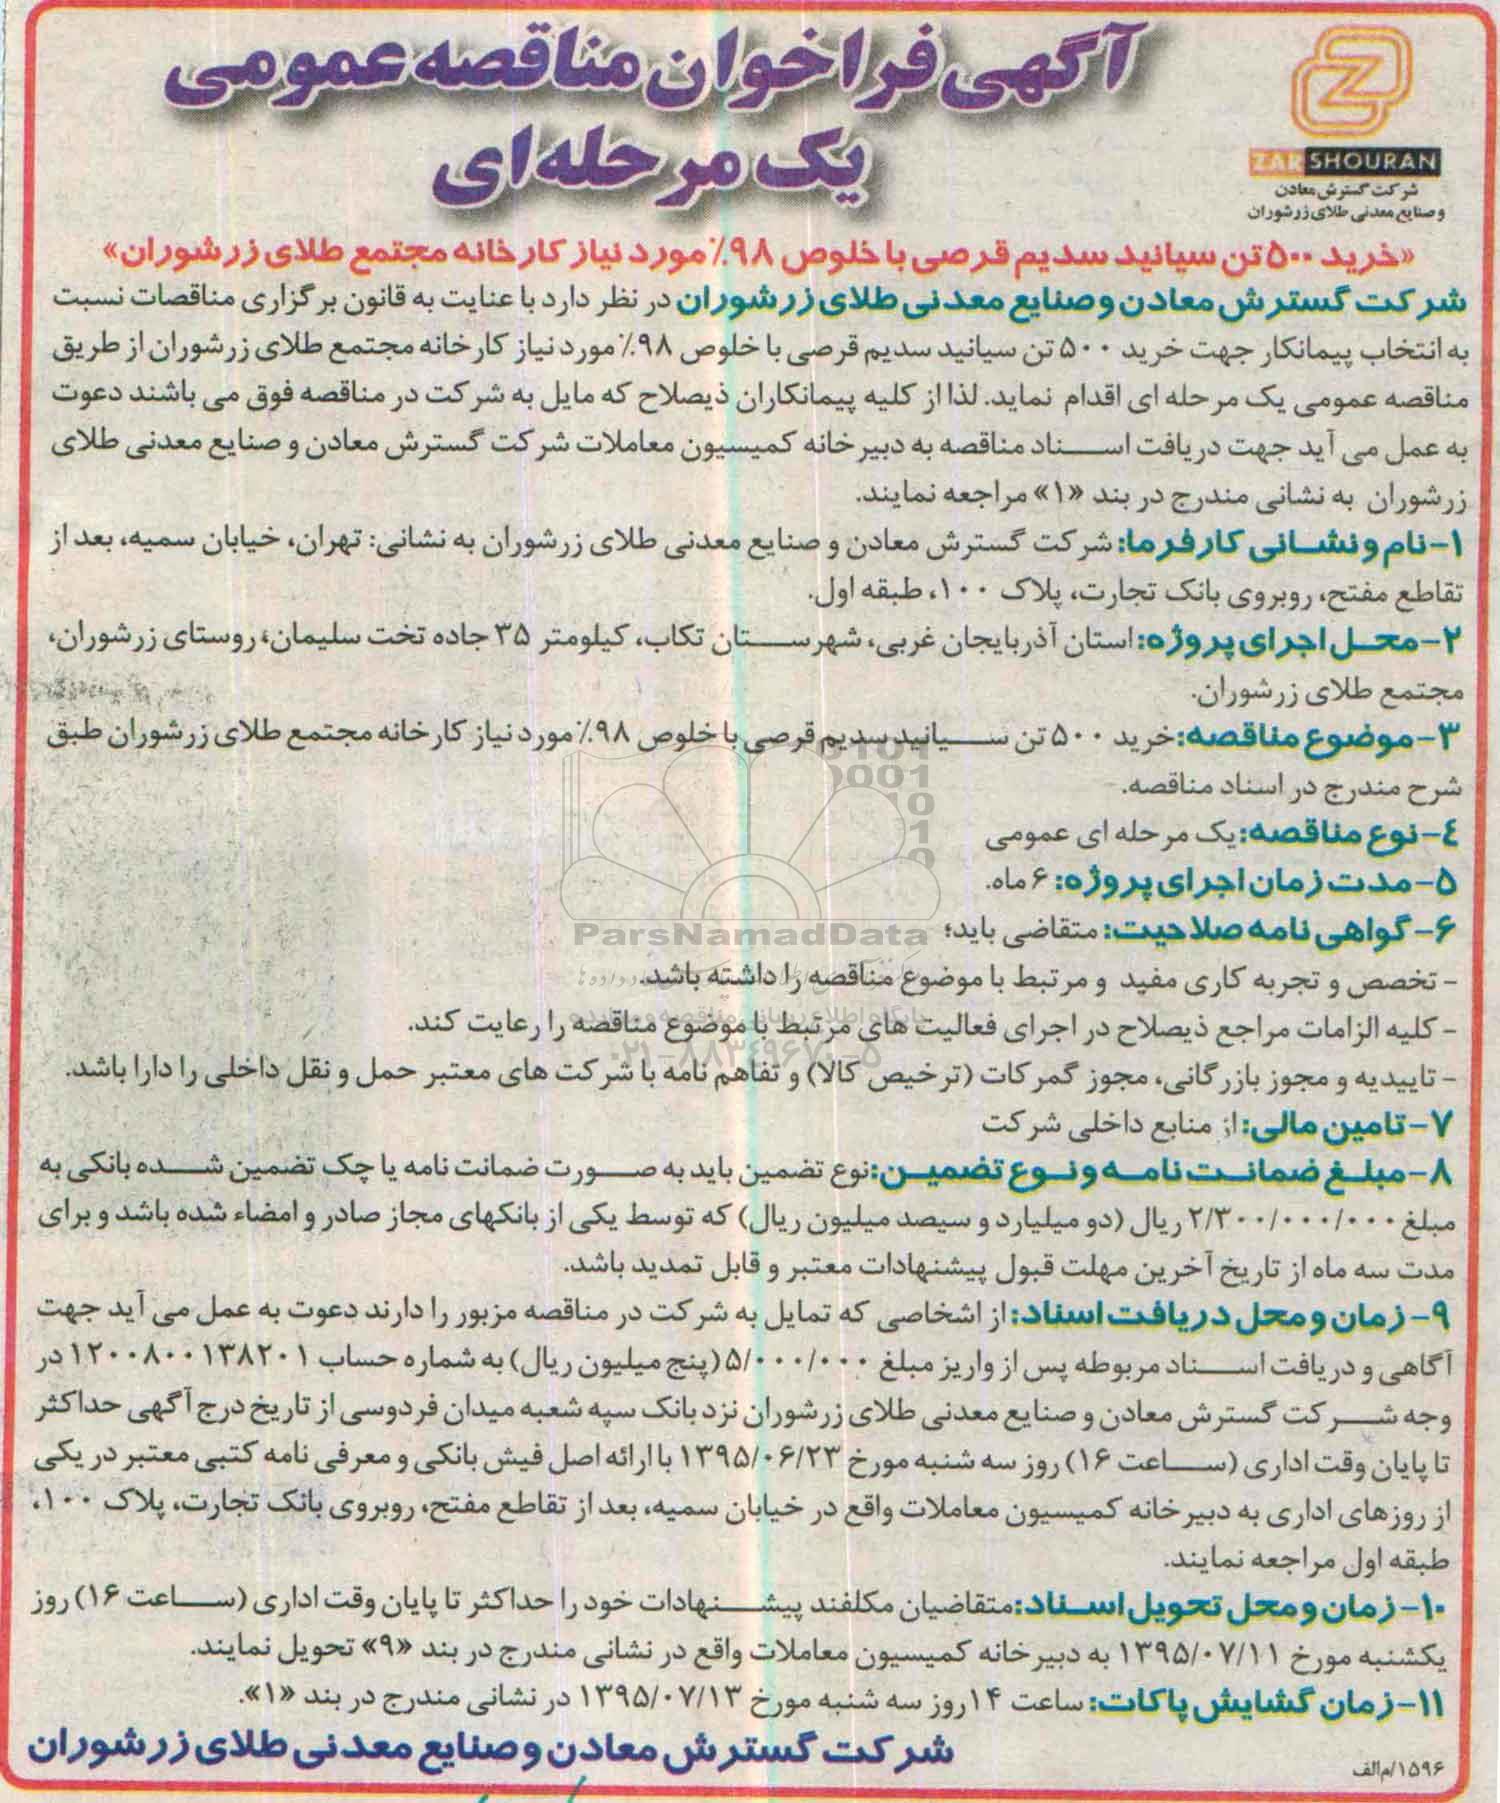 آگهی فراخوان مناقصه عمومی
یک مرحله‌ای
ZARSHOURAN
شرکت گسترش معادن
و صنایع معدنی طلای زرشوران
«خرید ۵۰۰ تن سیانید سدیم قرصی با خلوص ۹۸٪ مورد نیاز کارخانه مجتمع طلای زرشوران»
شرکت گسترش معادن و صنایع معدنی طلای زرشوران در نظر دارد با عنایت به قانون برگزاری مناقصات نسبت
به انتخاب پیمانکار جهت خرید ۵۰۰ تن سیانید سدیم قرصی با خلوص ۹۸٪ مورد نیاز کارخانه مجتمع طلای زرشوران از طریق
مناقصه عمومی یک مرحله ای اقدام نماید. لذا از کلیه پیمانکاران ذیصلاح که مایل به شرکت در مناقصه فوق می باشند دعوت
به عمل می آید جهت دریافت اسناد مناقصه به دبیرخانه کمیسیون معاملات شرکت گسترش معادن و صنایع معدنی طلای
زرشوران به نشانی مندرج در بند «۱» مراجعه نمایند.
۱- نام و نشانی کارفرما: شرکت گسترش معادن و صنایع معدنی طلای زرشوران به نشانی: تهران، خیابان سمیه، بعد از
تقاطع مفتح، روبروی بانک تجارت، پلاک ۱۰۰، طبقه اول.
۲- محل اجرای پروژه: استان آذربایجان غربی، شهرستان تکاب، کیلومتر ۳۵ جاده تخت سلیمان، روستای زرشوران،
مجتمع طلای زرشوران.
۳- موضوع مناقصه: خرید ۵۰۰ تن سیانید سدیم قرصی با خلوص ۹۸٪ مورد نیاز کارخانه مجتمع طلای زرشوران طبق
شرح مندرج در اسناد مناقصه.
۴- نوع مناقصه: یک مرحله ای عمومی
۵- مدت زمان اجرای پروژه: ۶ ماه.
۶- گواهی نامه صلاحیت: متقاضی باید؛
ParsNamadData
- تخصص و تجربه کاری مفید و مرتبط با موضوع مناقصه را داشته باشد.
- کلیه الزامات مراجع ذیصلاح در اجرای فعالیت های مرتبط با موضوع مناقصه را رعایت کند.
۰۲۱-۸۸۳۴۹۶۷۰-۵
- تاییدیه و مجوز بازرگانی، مجوز گمرکات (ترخیص کالا) و تفاهم نامه با شرکت های معتبر حمل و نقل داخلی را دارا باشد.
۷- تامین مالی: از منابع داخلی شرکت
۸- مبلغ ضمانت نامه و نوع تضمین: نوع تضمین باید به صورت ضمانت نامه یا چک تضمین شده بانکی به
مبلغ ۲/۳۰۰/۰۰۰/۰۰۰ ریال (دو میلیارد و سیصد میلیون ریال) که توسط یکی از بانکهای مجاز صادر و امضاء شده باشد و برای
مدت سه ماه از تاریخ آخرین مهلت قبول پیشنهادات معتبر و قابل تمدید باشد.
۹- زمان و محل دریافت اسناد: از اشخاصی که تمایل به شرکت در مناقصه مزبور را دارند دعوت به عمل می آید جهت
آگاهی و دریافت اسناد مربوطه پس از واریز مبلغ ۵/۰۰۰/۰۰۰ (پنج میلیون ریال) به شماره حساب ۱۲۰۰۸۰۰۱۳۸۲۰۱ در
وجه شرکت گسترش معادن و صنایع معدنی طلای زرشوران نزد بانک سپه شعبه میدان فردوسی از تاریخ درج آگهی حداکثر
تا پایان وقت اداری (ساعت ۱۶) روز سه شنبه مورخ ۱۳۹۵/۰۶/۲۳ با ارائه اصل فیش بانکی و معرفی نامه کتبی معتبر در یکی
از روزهای اداری به دبیرخانه کمیسیون معاملات واقع در خیابان سمیه، بعد از تقاطع مفتح، روبروی بانک تجارت، پلاک ۱۰۰،
طبقه اول مراجعه نمایند.
۱۰- زمان و محل تحویل اسناد: متقاضیان مکلفند پیشنهادات خود را حداکثر تا پایان وقت اداری (ساعت ۱۶) روز
یکشنبه مورخ ۱۳۹۵/۰۷/۱۱ به دبیرخانه کمیسیون معاملات واقع در نشانی مندرج در بند «۹» تحویل نمایند.
۱۱- زمان گشایش پاکات: ساعت ۱۴ روز سه شنبه مورخ ۱۳۹۵/۰۷/۱۳ در نشانی مندرج در بند «۱».
شرکت گسترش معادن و صنایع معدنی طلای زرشوران
۱۵۹۶/م الف